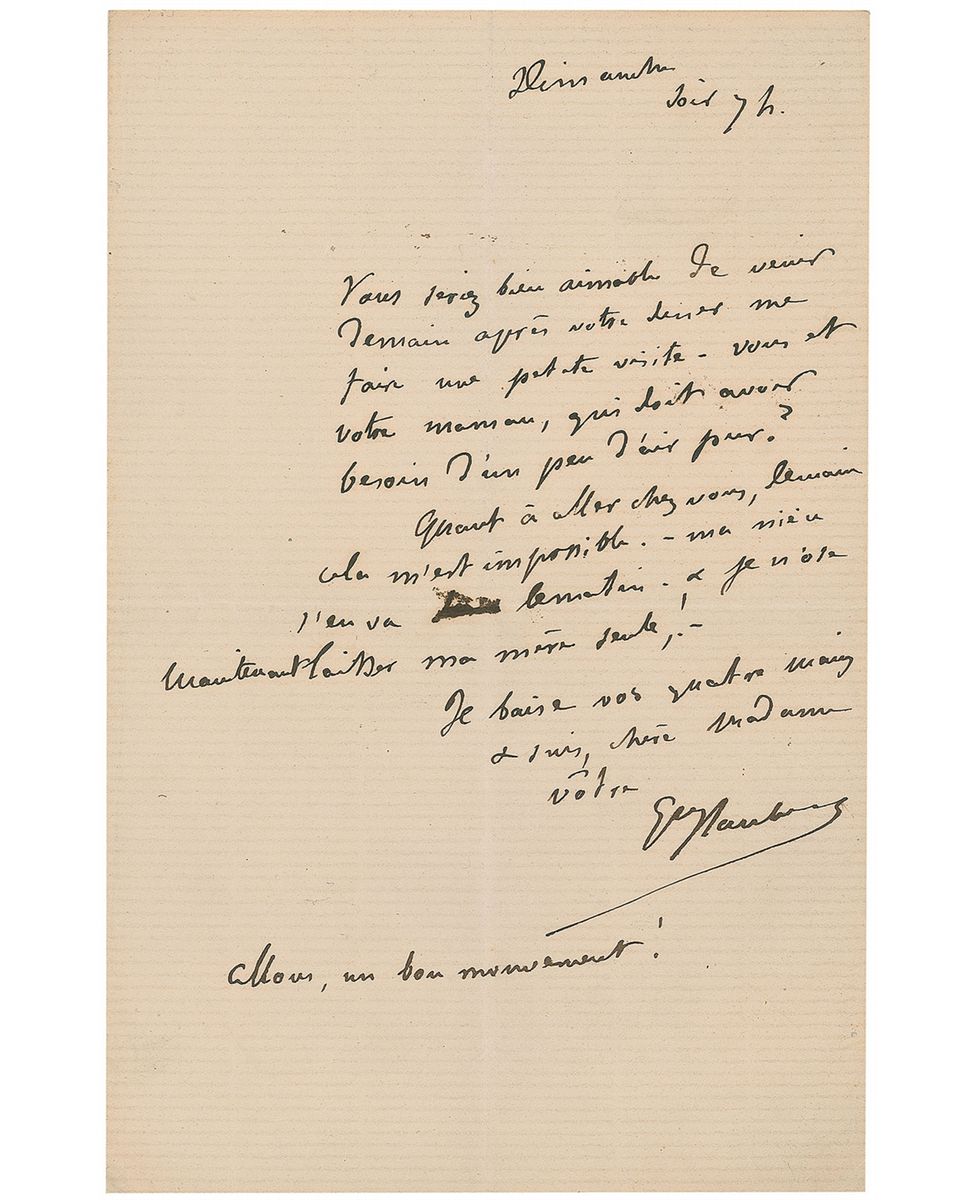 Dimanche
soir 7 h.
Vous seriez bien aimable de venir
demain après votre dîner me
faire une petite visite - vous et
votre maman, qui doit avoir
besoin d'un peu d'air pur ?
Quant à aller chez vous, demain
cela m'est impossible. - ma nièce
s'en va le matin - & je n'ose
maintenant laisser ma mère seule ! -
Je baise vos quatre mains
& suis, chère Madame
vôtre
Gve Flaubert
Allons, un bon mouvement !